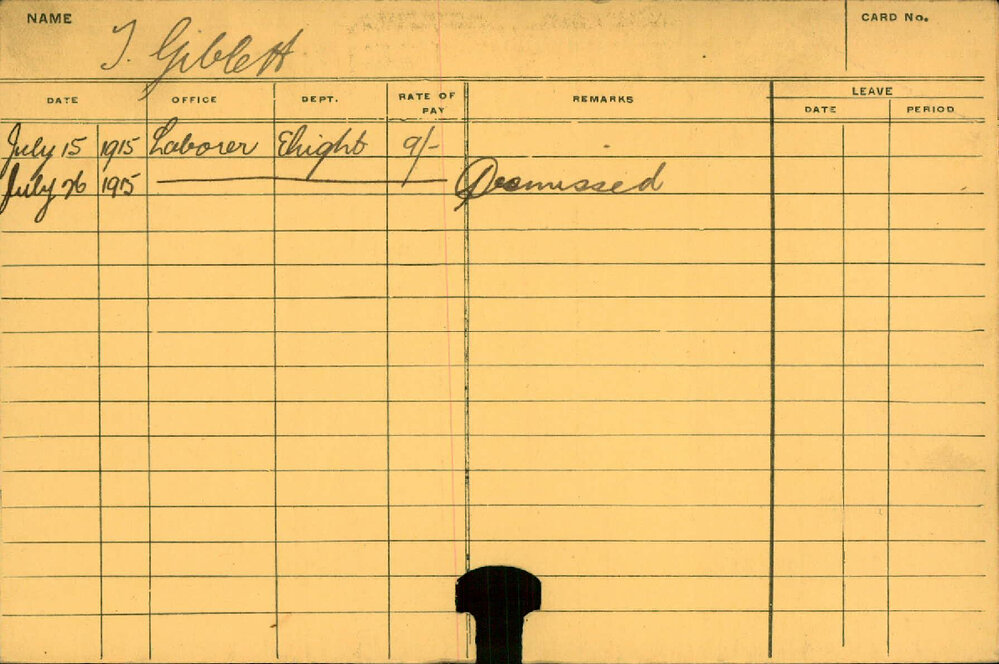 NAME T. Giblett CARD No.
DATE OFFICE DEPT. RATE OF PAY REMARKS LEAVE
DATE PERIOD
July 15 1915 Laborer Elright 9/-
July 26 1915 Dismissed